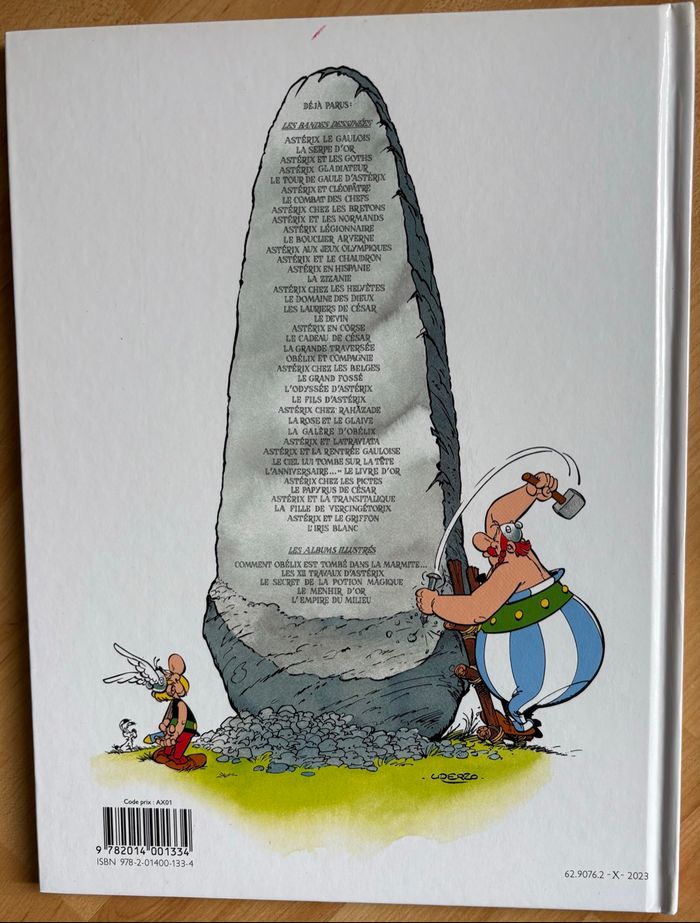 DÉJÀ PARUS :
LES BANDES DESSINÉES
ASTÉRIX LE GAULOIS
LA SERPE D'OR
ASTÉRIX ET LES GOTHS
ASTÉRIX GLADIATEUR
LE TOUR DE GAULE D'ASTÉRIX
ASTÉRIX ET CLÉOPÂTRE
LE COMBAT DES CHEFS
ASTÉRIX CHEZ LES BRETONS
ASTÉRIX ET LES NORMANDS
ASTÉRIX LÉGIONNAIRE
LE BOUCLIER ARVERNE
ASTÉRIX AUX JEUX OLYMPIQUES
ASTÉRIX ET LE CHAUDRON
ASTÉRIX EN HISPANIE
LA ZIZANIE
ASTÉRIX CHEZ LES HELVÈTES
LE DOMAINE DES DIEUX
LES LAURIERS DE CÉSAR
LE DEVIN
ASTÉRIX EN CORSE
LE CADEAU DE CÉSAR
LA GRANDE TRAVERSÉE
OBÉLIX ET COMPAGNIE
ASTÉRIX CHEZ LES BELGES
LE GRAND FOSSÉ
L'ODYSSÉE D'ASTÉRIX
LE FILS D'ASTÉRIX
ASTÉRIX CHEZ RAHÀZADE
LA ROSE ET LE GLAIVE
LA GALÈRE D'OBÉLIX
ASTÉRIX ET LATRAVIATA
ASTÉRIX ET LA RENTRÉE GAULOISE
LE CIEL LUI TOMBE SUR LA TÊTE
L'ANNIVERSAIRE... " LE LIVRE D'OR
ASTÉRIX CHEZ LES PICTES
LE PAPYRUS DE CÉSAR
ASTÉRIX ET LA TRANSITALIQUE
LA FILLE DE VERCINGÉTORIX
ASTÉRIX ET LE GRIFFON
L'IRIS BLANC
LES ALBUMS ILLUSTRÉS
COMMENT OBÉLIX EST TOMBÉ DANS LA MARMITE...
LES XII TRAVAUX D'ASTÉRIX
LE SECRET DE LA POTION MAGIQUE
LE MENHIR D'OR
L'EMPIRE DU MILIEU
UDERZO
Code prix : AX01
9 782014 001334
ISBN 978-2-01400-133-4
62.9076.2 - X - 2023